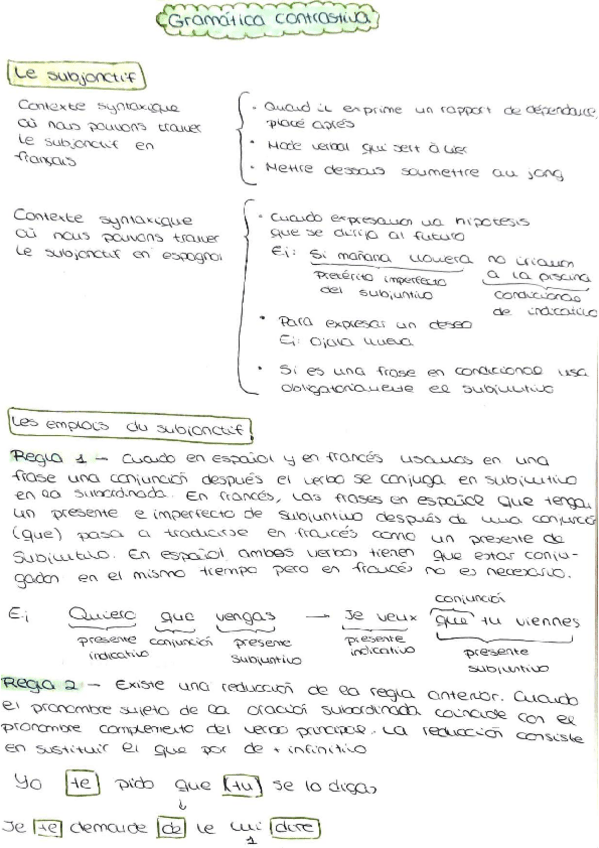 Gramática contrastiva
Le subjonctif
Contexte syntaxique
où nous pouvons trouver
le subjonctif en
français
• Quand il exprime un rapport de dépendance,
placé après
• Mode verbal qui sert à lier
• Mettre dessous soumettre au joug
Contexte syntaxique
où nous pouvons trouver
le subjonctif en espagnol
• Cuando expresamos una hipótesis
que se dirija al futuro
Ej: Si mañana lloviera no iríamos
a la piscina
Pretérito imperfecto
del subjuntivo
condicional
de indicativo
• Para expresar un deseo
Ej: Ojalá llueva
• Si es una frase en condicional usa
obligatoriamente el subjuntivo
Les emplois du subjonctif
Regla 1 – Cuando en español y en francés usamos en una
frase una conjunción después el verbo se conjuga en subjuntivo
en la subordinada. En francés, las frases en español que tengan
un presente e imperfecto de subjuntivo después de una conjunció
(que) pasa a traducirse en francés como un presente de
subjuntivo. En español ambos verbos tienen que estar conju-
gados en el mismo tiempo pero en francés no es necesario.
conjunció
Ej Quiero que vengas → Je veux que tu viennes
presente conjunción presente presente presente
indicativo subjuntivo indicativo subjuntivo
Regla 2 – Existe una reducción de la regla anterior. Cuando
el pronombre sujeto de la oración subordinada coincide con el
pronombre complemento del verbo principal. La reducción consiste
en sustituir el que por de + infinitivo
Yo te pido que (tu) se lo digas
↓
Je te demande de le lui dire
1